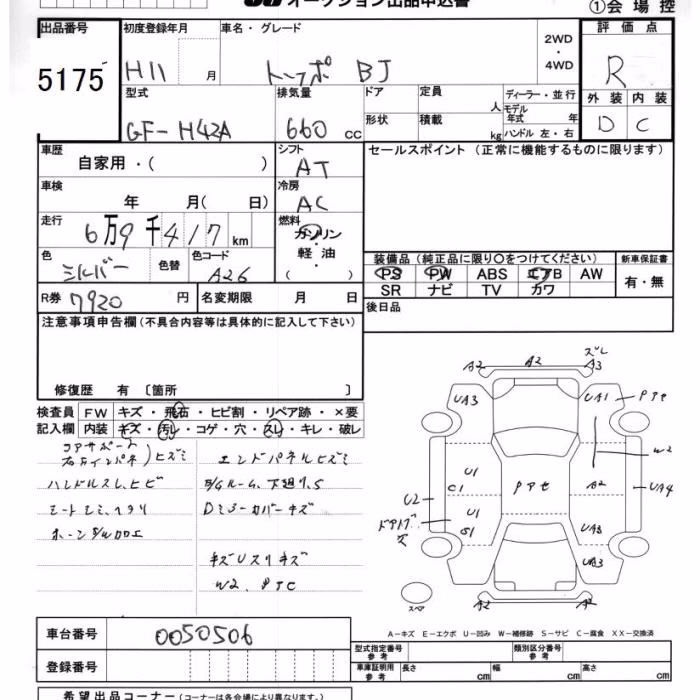 オークション出品申込書
①会場控
出品番号
5175
初度登録年月
H11 月
車名・グレード
トッポ BJ
2WD
・
4WD
評価点
R
型式
GF-H42A
排気量
660 cc
ドア
形状
定員
人
積載
kg
ディーラー・並行
モデル年式 年
ハンドル 左・右
外装 内装
D C
車歴
自家用・( )
シフト
AT
セールスポイント (正常に機能するものに限ります)
車検
年 月( 日)
冷房
AC
走行
6万9千417 km
燃料
ガソリン
・
軽油
( )
色
シルバー
色替
色コード
A26
装備品 (純正品に限り○をつけてください)
新車保証書
PS PW ABS エアB AW
SR ナビ TV カワ
有・無
R券 7920 円
名変期限 月 日
後日品
注意事項申告欄 (不具合内容等は具体的に記入して下さい)
修復歴 有 〔箇所 〕
検査員 FW キズ・飛石・ヒビ割・リペア跡・×要
記入欄 内装 キズ・汚レ・コゲ・穴・スレ・キレ・破レ
コアサポート
右左インパネ)ヒズミ
エンドパネルヒズミ
ハンドルスレ、ヒビ
シートシミ、ヘタリ
Dミラーカバーキズ
キズUスリキズ
W2、PTE
A2 A2 A3 ズレ
UA3 UA1 PTセ
W2
U1
C1 Pアセ A2 UA4
U2
U1
S1 UA3
ドアバイザ
UA3
A2 A2
スペア
A－キズ E－エクボ U－凹み W－補修跡 S－サビ C－腐食 XX－交換済
車台番号 0050506
型式指定番号
参考
類別区分番号
参考
登録番号
車庫証明用
参考
長さ cm 幅 cm 高さ cm
希望出品コーナー (コーナーは各会場により異なります。)